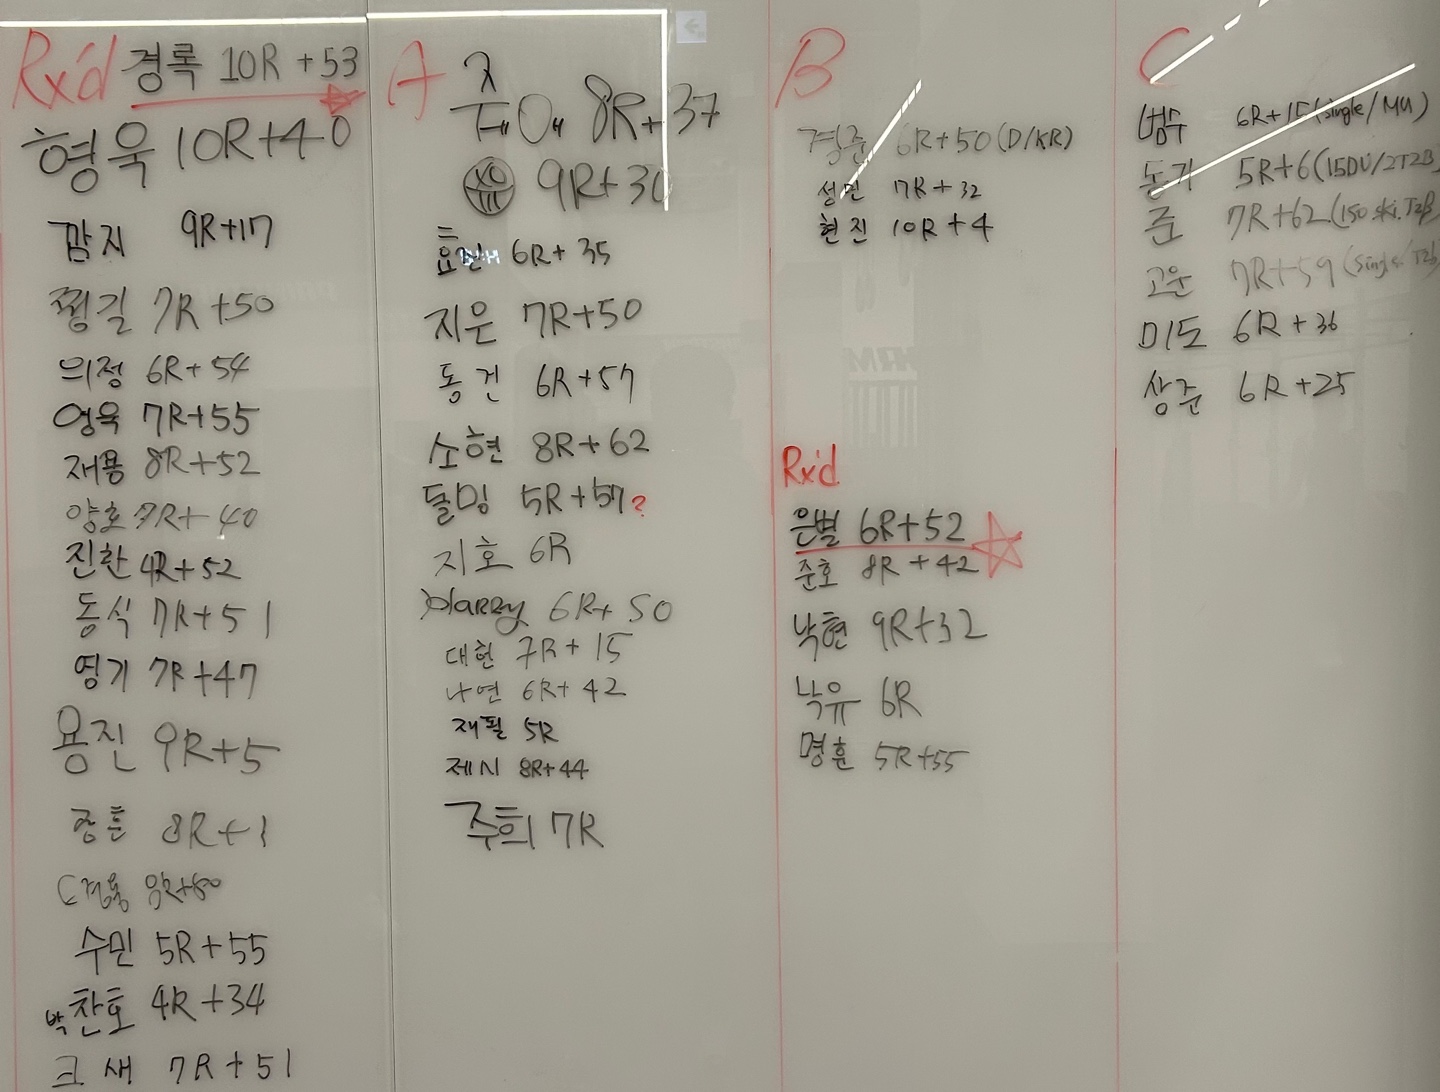 Rx'd 경록 10R +53
형욱 10R+40
깜지 9R+17
찡길 7R+50
의정 6R+54
영욱 7R+55
재용 8R+52
양호 7R+40
진한 4R+52
동식 7R+51
영기 7R+47
용진 9R+5
8R+1
수민 5R+55
박찬호 4R+34
크새 7R+51
A
8R+37
9R+30
6R+35
지은 7R+50
동건 6R+57
소현 8R+62
돌밍 5R+57?
지호 6R
Harry 6R+50
대현 7R+15
나연 6R+42
재필 5R
제시 8R+44
주희 7R
B
경준 6R+50(D/KR)
성민 7R+32
현진 10R+4
Rx'd
은별 6R+52
준호 8R+42
낙현 9R+32
낙유 6R
명훈 5R+55
C
범수 6R+15(single/MU)
5R+6(15DU/2T2B
준 7R+62(150.ski.T2B
고운 7R+59(single/T2b
미도 6R+36
상준 6R+25